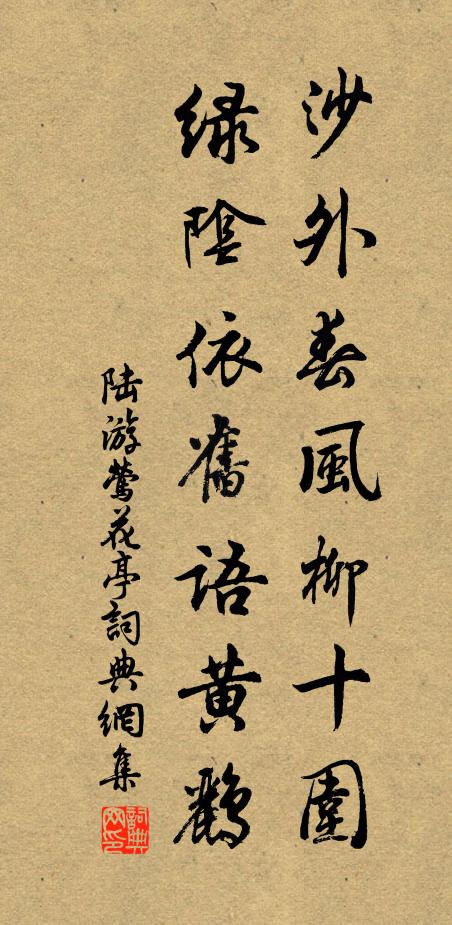 沙外春風柳十圍
緑陰依舊語黄鸝
陸游鶯花亭詞典網集
詞典网印